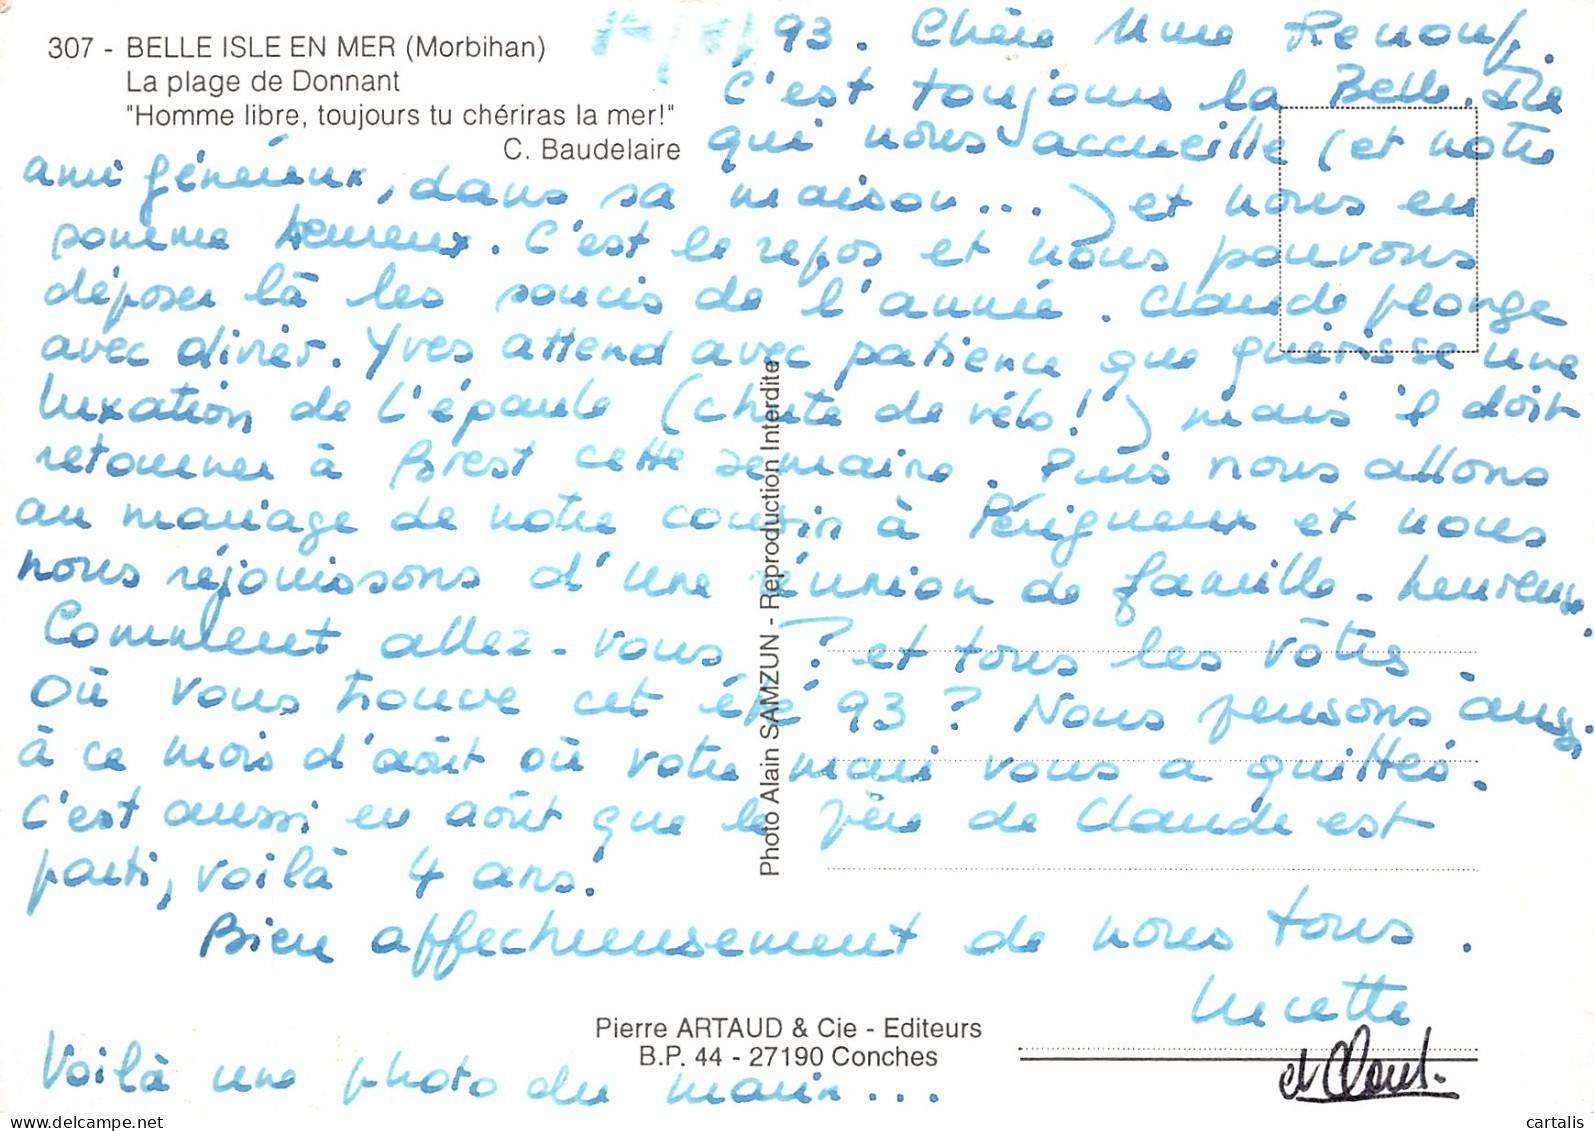 307 - BELLE ISLE EN MER (Morbihan)
La plage de Donnant
"Homme libre, toujours tu chériras la mer!"
C. Baudelaire
93. Chère Mme Renouf.
C'est toujours la Belle-Ile
qui nous accueille (et notre
ami généreux, dans sa maison...) et nous en
somme heureux. C'est le repos et nous pouvons
déposer là les soucis de l'année. Claude plonge
avec olivier. Yves attend avec patience que guérisse une
luxation de l'épaule (chute de vélo!) mais il doit
retourner à Brest cette semaine. Puis nous allons
au mariage de notre cousin à Périgueux et nous
nous réjouissons d'une réunion de famille - heureuse.
Comment allez-vous ? et tous les vôtres.
Où vous trouve cet été 93 ? Nous pensons aussi
à ce mois d'août où votre mari vous a quittés.
C'est aussi en août que le père de Claude est
parti, voilà 4 ans.
Bien affectueusement de nous tous.
Lucette
et Claude
Voilà une photo du marin...
Photo Alain SAMZUN - Reproduction Interdite
Pierre ARTAUD & Cie - Editeurs
B.P. 44 - 27190 Conches
cartalis
www.delcampe.net